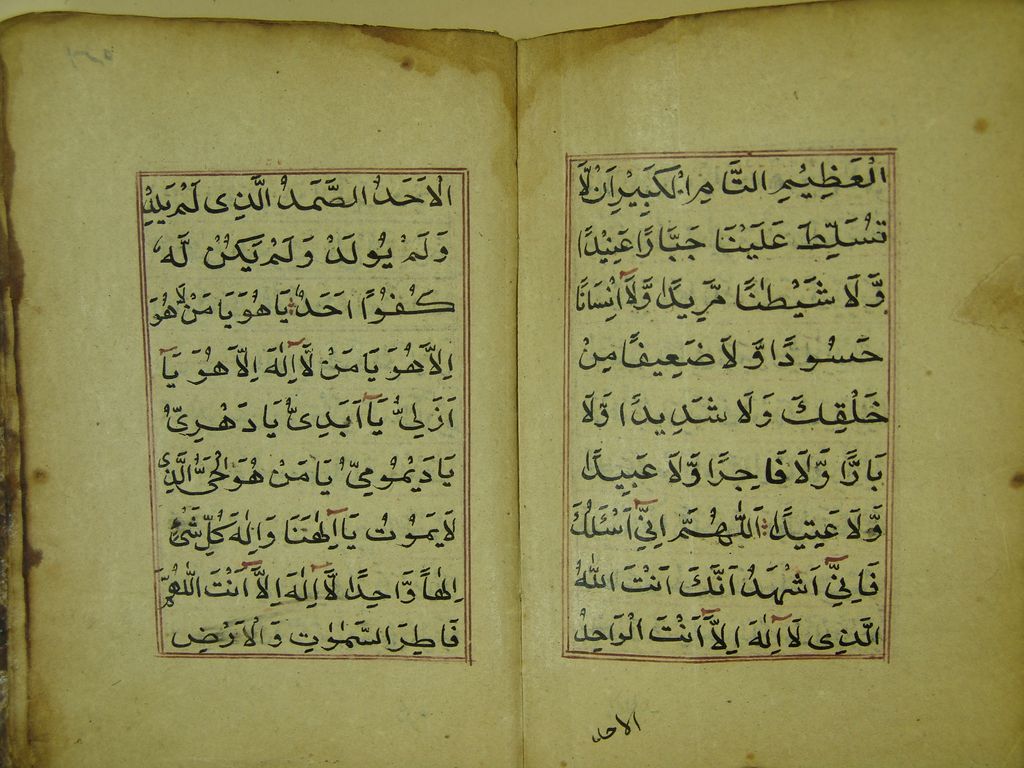 الْعَظِيْمِ التَّامِ الْكَبِيْرِ اَنْ لَّا
تُسَلِّطَ عَلَيْنَا جَبَّارًا عَنِيْدًا
وَّلَا شَيْطٰنًا مَّرِيْدًا وَّلَآ اِنْسَانًا
حَسُوْدًا وَّلَا ضَعِيفًا مِنْ
خَلْقِكَ وَلَا شَدِيدًا وَّلَا
بَارًّا وَّلَا فَاجِرًا وَّلَا عَبِيدًا
وَّلَا عَنِيْدًا اَللّٰهُمَّ اِنِّيْٓ اَسْئَلُكَ
فَاِنِّيْٓ اَشْهَدُ اَنَّكَ اَنْتَ اللّٰهُ
الَّذِى لَآ اِلٰهَ اِلَّآ اَنْتَ الْوَاحِدُ
الاحد
الْاَحَدُ الصَّمَدُ الَّذِى لَمْ يَلِدْ
وَلَمْ يُولَدْ وَلَمْ يَكُنْ لَّهٗ
كُفُوًا اَحَدٌ يَا هُوَ يَا مَنْ لَّا هُوَ
اِلَّا هُوَ يَا مَنْ لَّآ اِلٰهَ اِلَّا هُوَ يَآ
اَزَلِىُّ يَآ اَبَدِىُّ يَا دَهْرِىُّ
يَا دَيْمُومِىُّ يَا مَنْ هُوَ الْحَىُّ الَّذِى
لَا يَمُوْتُ يَآ اِلٰهَنَا وَاِلٰهَ كُلِّ شَىْءٍ
اِلٰهًا وَّاحِدًا لَّآ اِلٰهَ اِلَّآ اَنْتَ اَللّٰهُمَّ
فَاطِرَ السَّمٰوٰتِ وَالْاَرْضِ